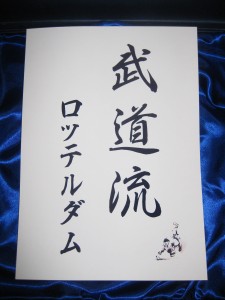 武道流
ロッテルダム